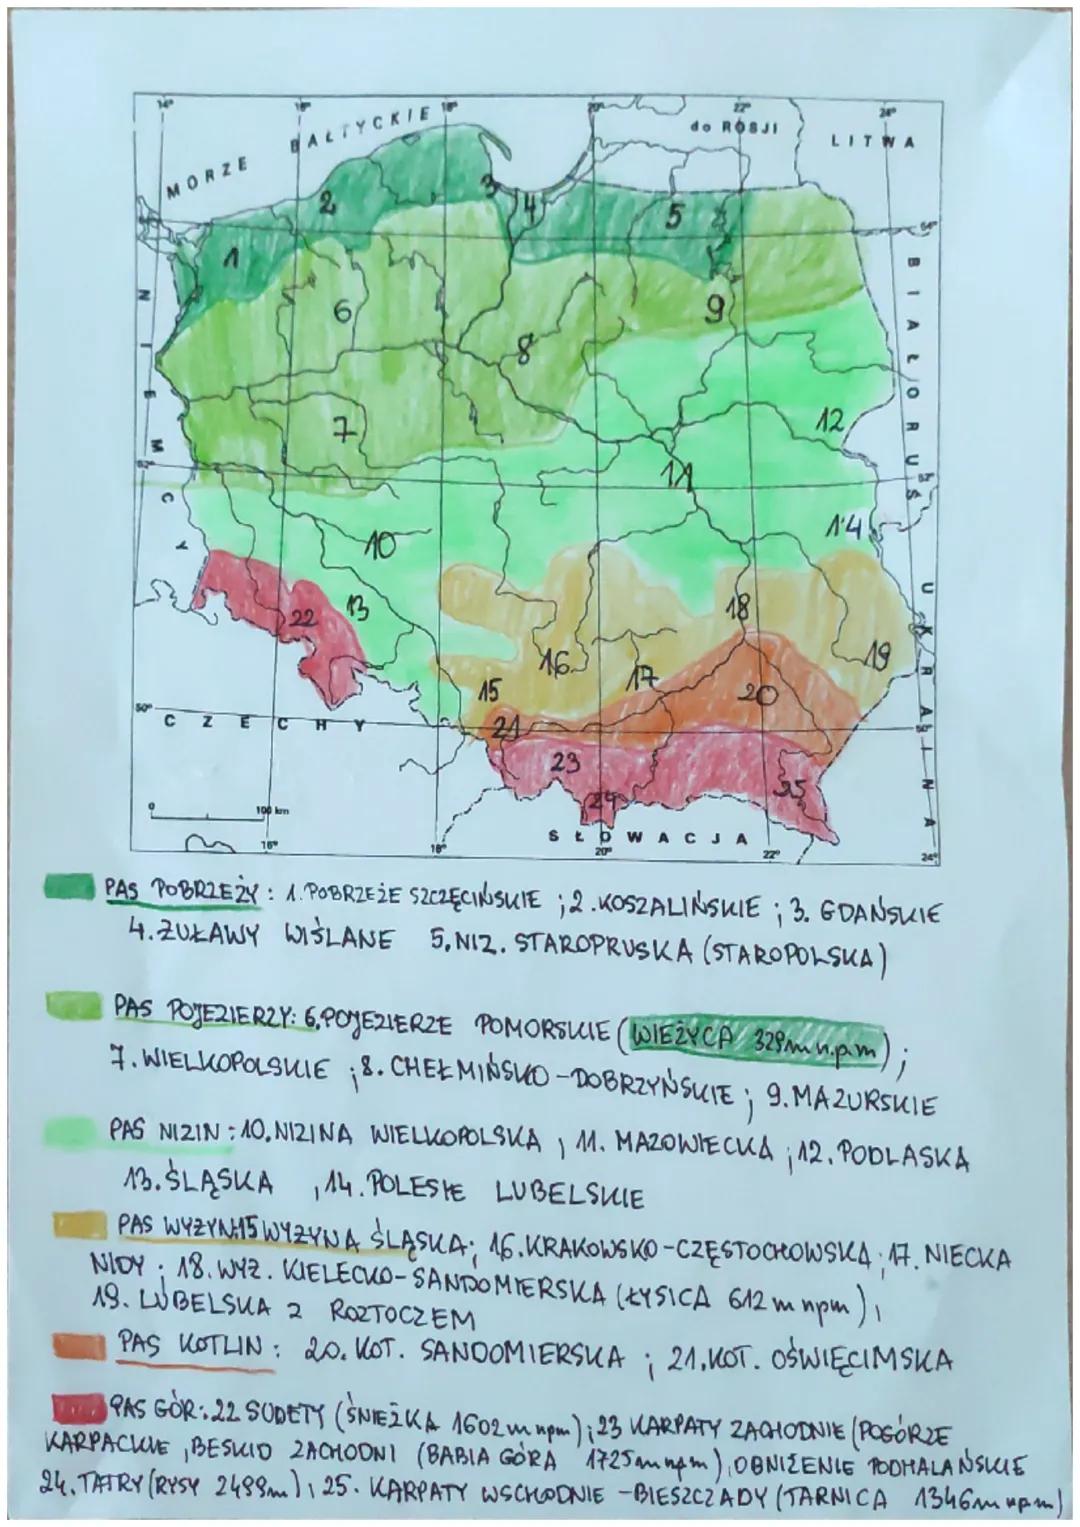 14° 16° 18° 20° 22° 24°
MORZE BAŁTYCKIE
do ROSJI
LITWA
BIAŁORUŚ
UKRAINA
NIEMCY
CZECHY
SŁOWACJA
54° 54°
52° 52°
50° 50°
1 2 3 4 5
6 7 8 9
10 11 12 13 14
15 16 17 18 19
20 21
22 23 24 25
0 100 km
16° 18° 20° 22° 24°
PAS POBRZEŻY: 1. POBRZEŻE SZCZĘCIŃSKIE ; 2. KOSZALIŃSKIE ; 3. GDAŃSKIE
4. ŻUŁAWY WIŚLANE 5. NIZ. STAROPRUSKA (STAROPOLSKA)
PAS POJEZIERZY: 6. POJEZIERZE POMORSKIE (WIEŻYCA 329m n.p.m) ;
7. WIELKOPOLSKIE ; 8. CHEŁMIŃSKO-DOBRZYŃSKIE ; 9. MAZURSKIE
PAS NIZIN : 10. NIZINA WIELKOPOLSKA , 11. MAZOWIECKA ; 12. PODLASKA
13. ŚLĄSKA , 14. POLESIE LUBELSKIE
PAS WYŻYN: 15 WYŻYNA ŚLĄSKA ; 16. KRAKOWSKO-CZĘSTOCHOWSKA ; 17. NIECKA
NIDY ; 18. WYŻ. KIELECKO-SANDOMIERSKA (ŁYSICA 612 m npm) ,
19. LUBELSKA z ROZTOCZEM
PAS KOTLIN : 20. KOT. SANDOMIERSKA ; 21. KOT. OŚWIĘCIMSKA
PAS GÓR: 22 SUDETY (ŚNIEŻKA 1602 m npm) ; 23 KARPATY ZACHODNIE (POGÓRZE
KARPACKIE , BESKID ZACHODNI (BABIA GÓRA 1725m npm) , OBNIŻENIE PODHALAŃSKIE
24. TATRY (RYSY 2499m) , 25. KARPATY WSCHODNIE -BIESZCZADY (TARNICA 1346m npm)